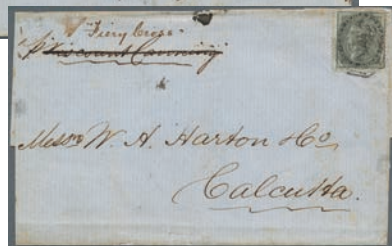 "Fiery Cross"
p Viscount Canning
Messrs W. H. Harton & Co
Calcutta.